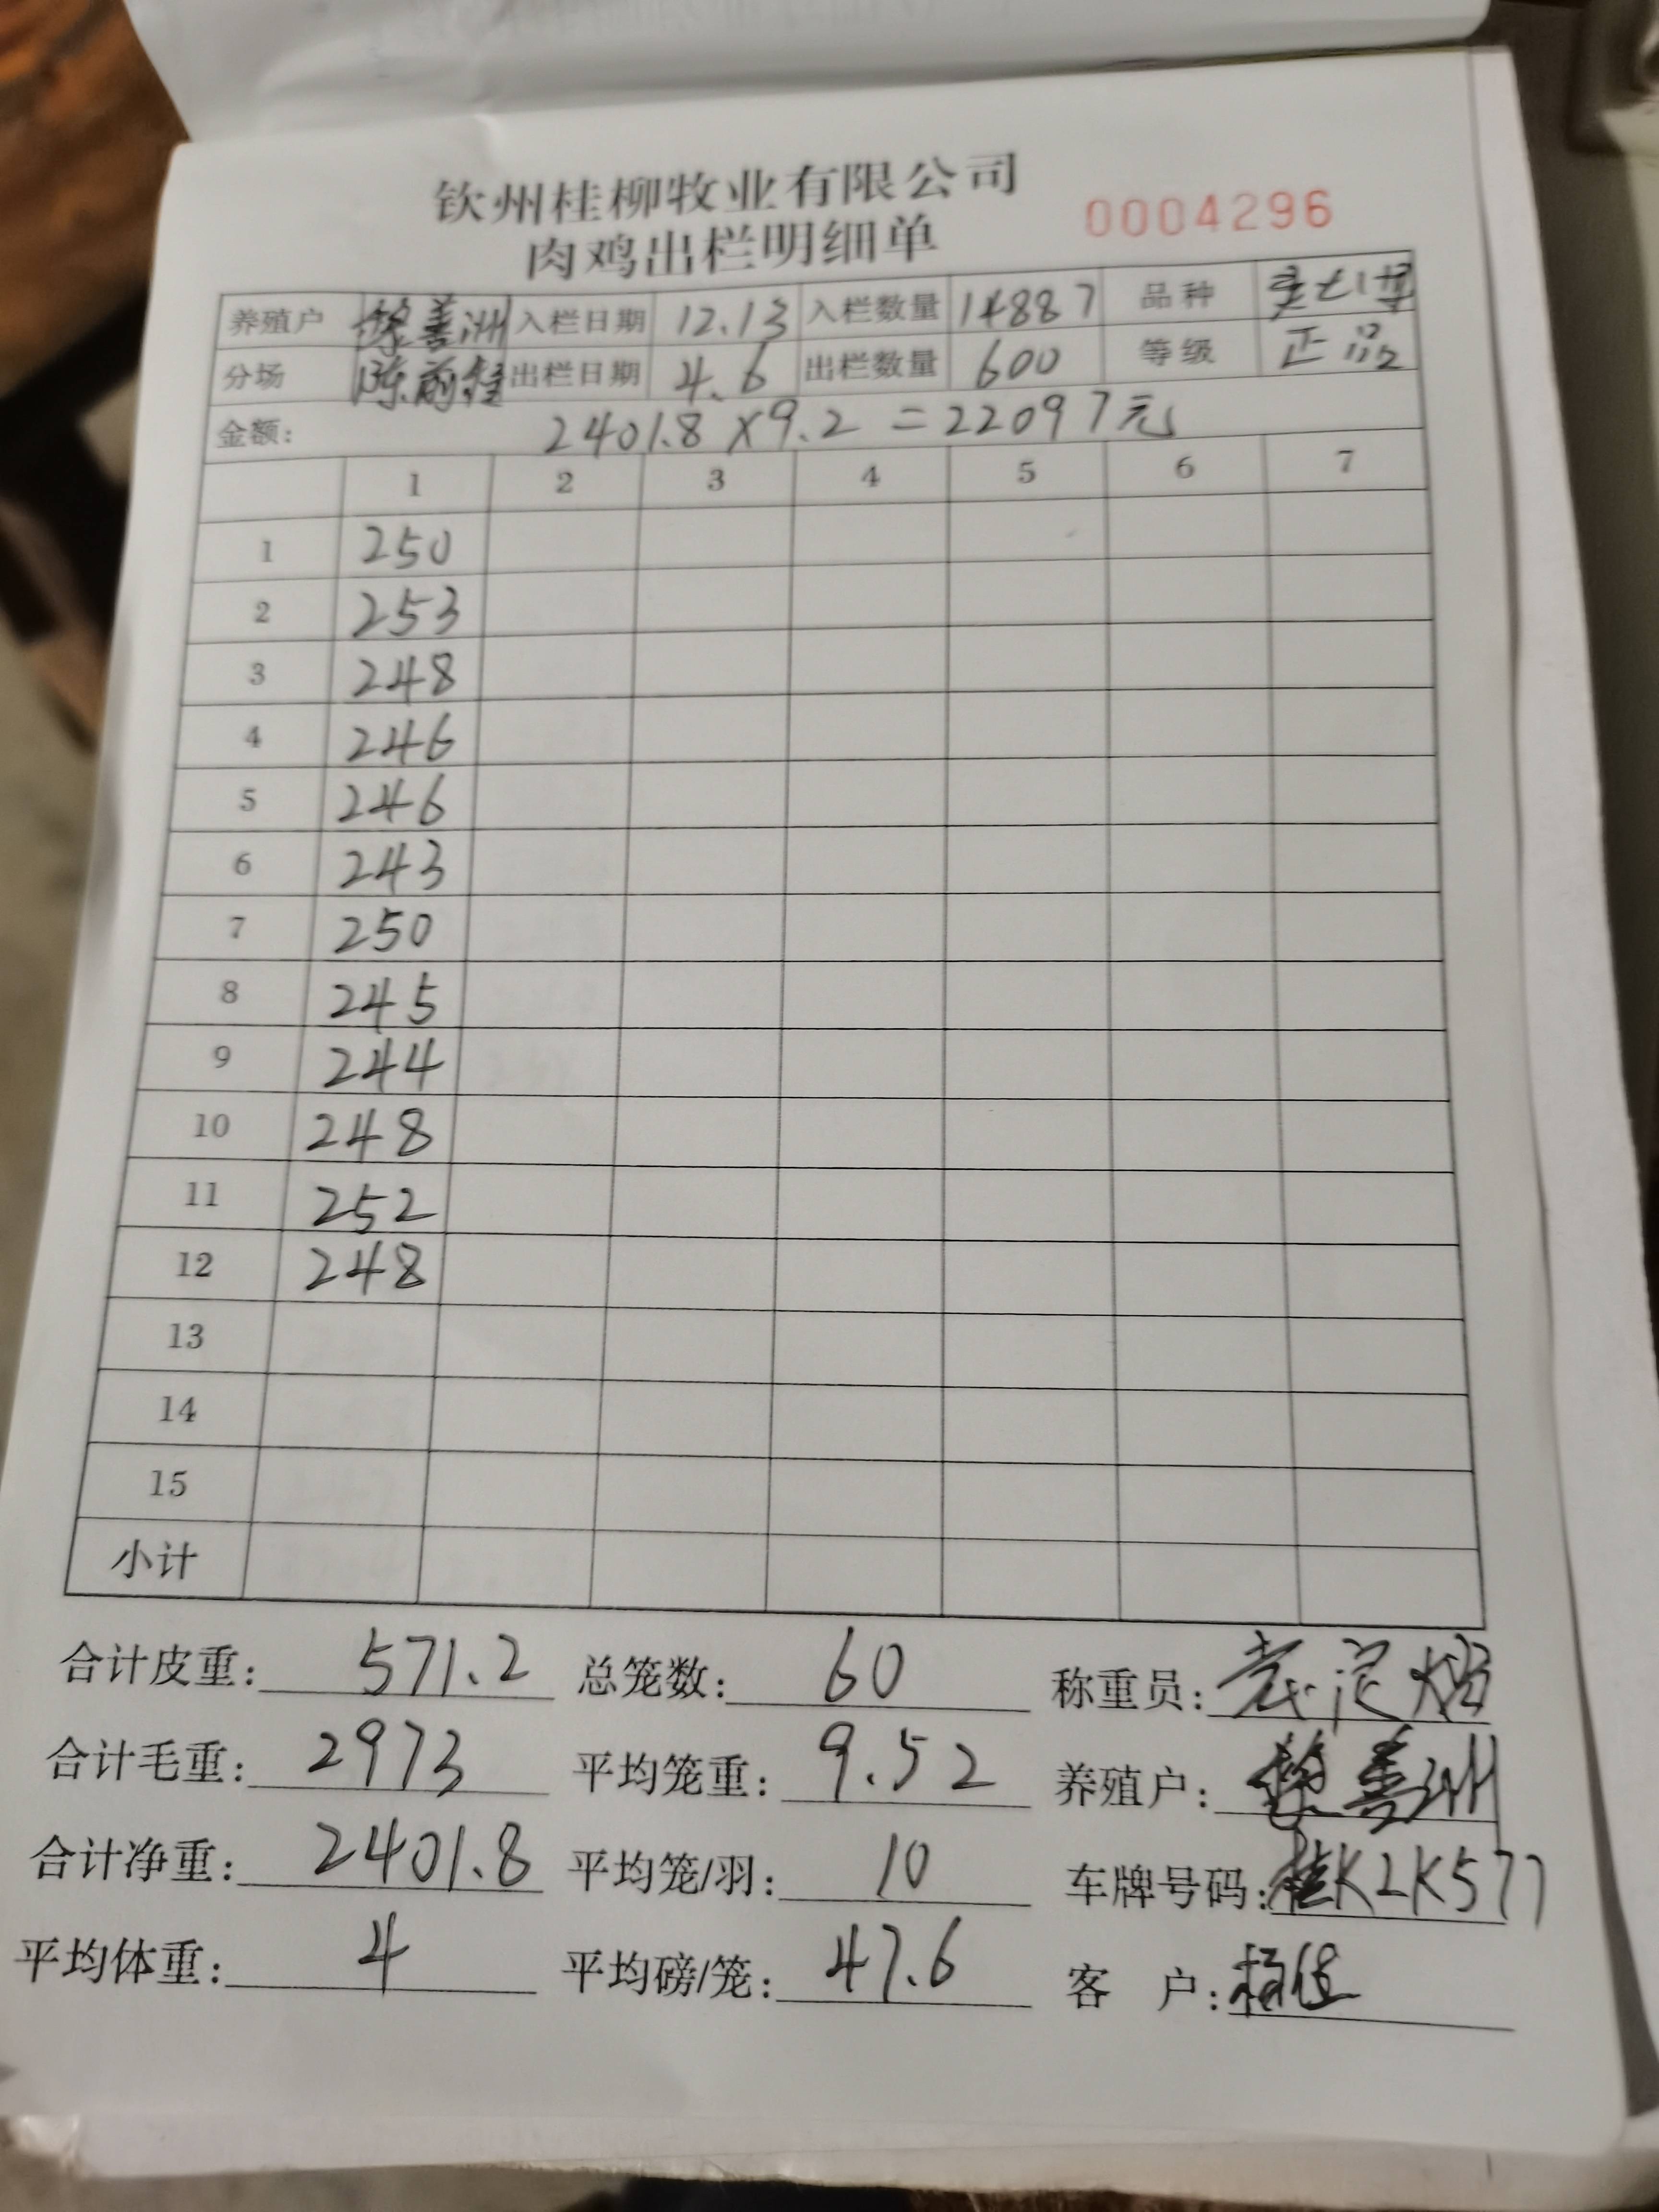 钦州桂柳牧业有限公司
肉鸡出栏明细单 0004296
养殖户 善洲 入栏日期 12.13 入栏数量 14887 品种
分场 陈前 出栏日期 4.6 出栏数量 600 等级 正品
金额: 2401.8×9.2=22097元
1 2 3 4 5 6 7
1 250
2 253
3 248
4 246
5 246
6 243
7 250
8 245
9 244
10 248
11 252
12 248
13
14
15
小计
合计皮重: 571.2 总笼数: 60 称重员:
合计毛重: 2973 平均笼重: 9.52 养殖户: 善洲
合计净重: 2401.8 平均笼/羽: 10 车牌号码: 桂K2K577
平均体重: 4 平均磅/笼: 47.6 客 户: 杨